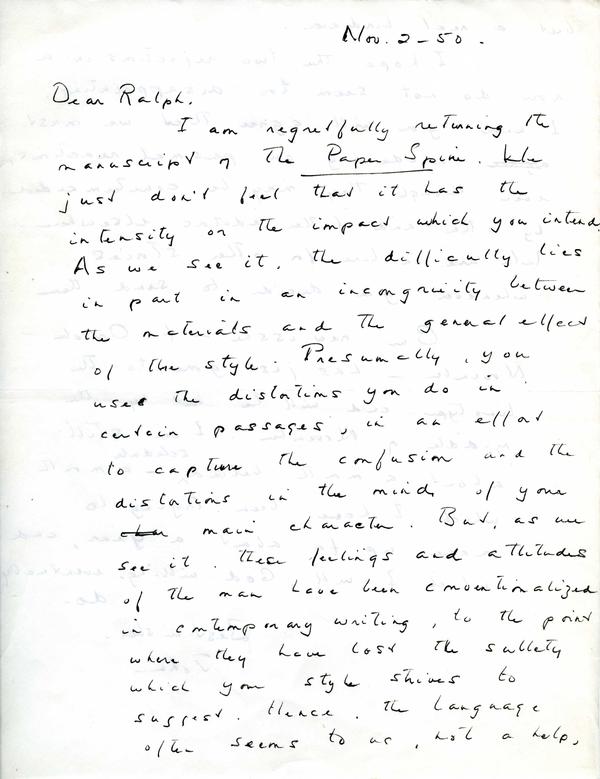 Nov. 2 - 50.
Dear Ralph.
I am regretfully returning the
manuscript of the Paper Spine. We
just don't feel that it has the
intensity or the impact which you intend.
As we see it, the difficulty lies
in part in an incongruity between
the materials and the general effect
of the style. Presumably, you
use the distortions you do in
certain passages, in an effort
to capture the confusion and the
distortions in the mind of your
main character. But, as we
see it, these feelings and attitudes
of the man have been conventionalized
in contemporary writing, to the point
where they have lost the subtlety
which your style strives to
suggest. Hence, the language
often seems to us, not a help,